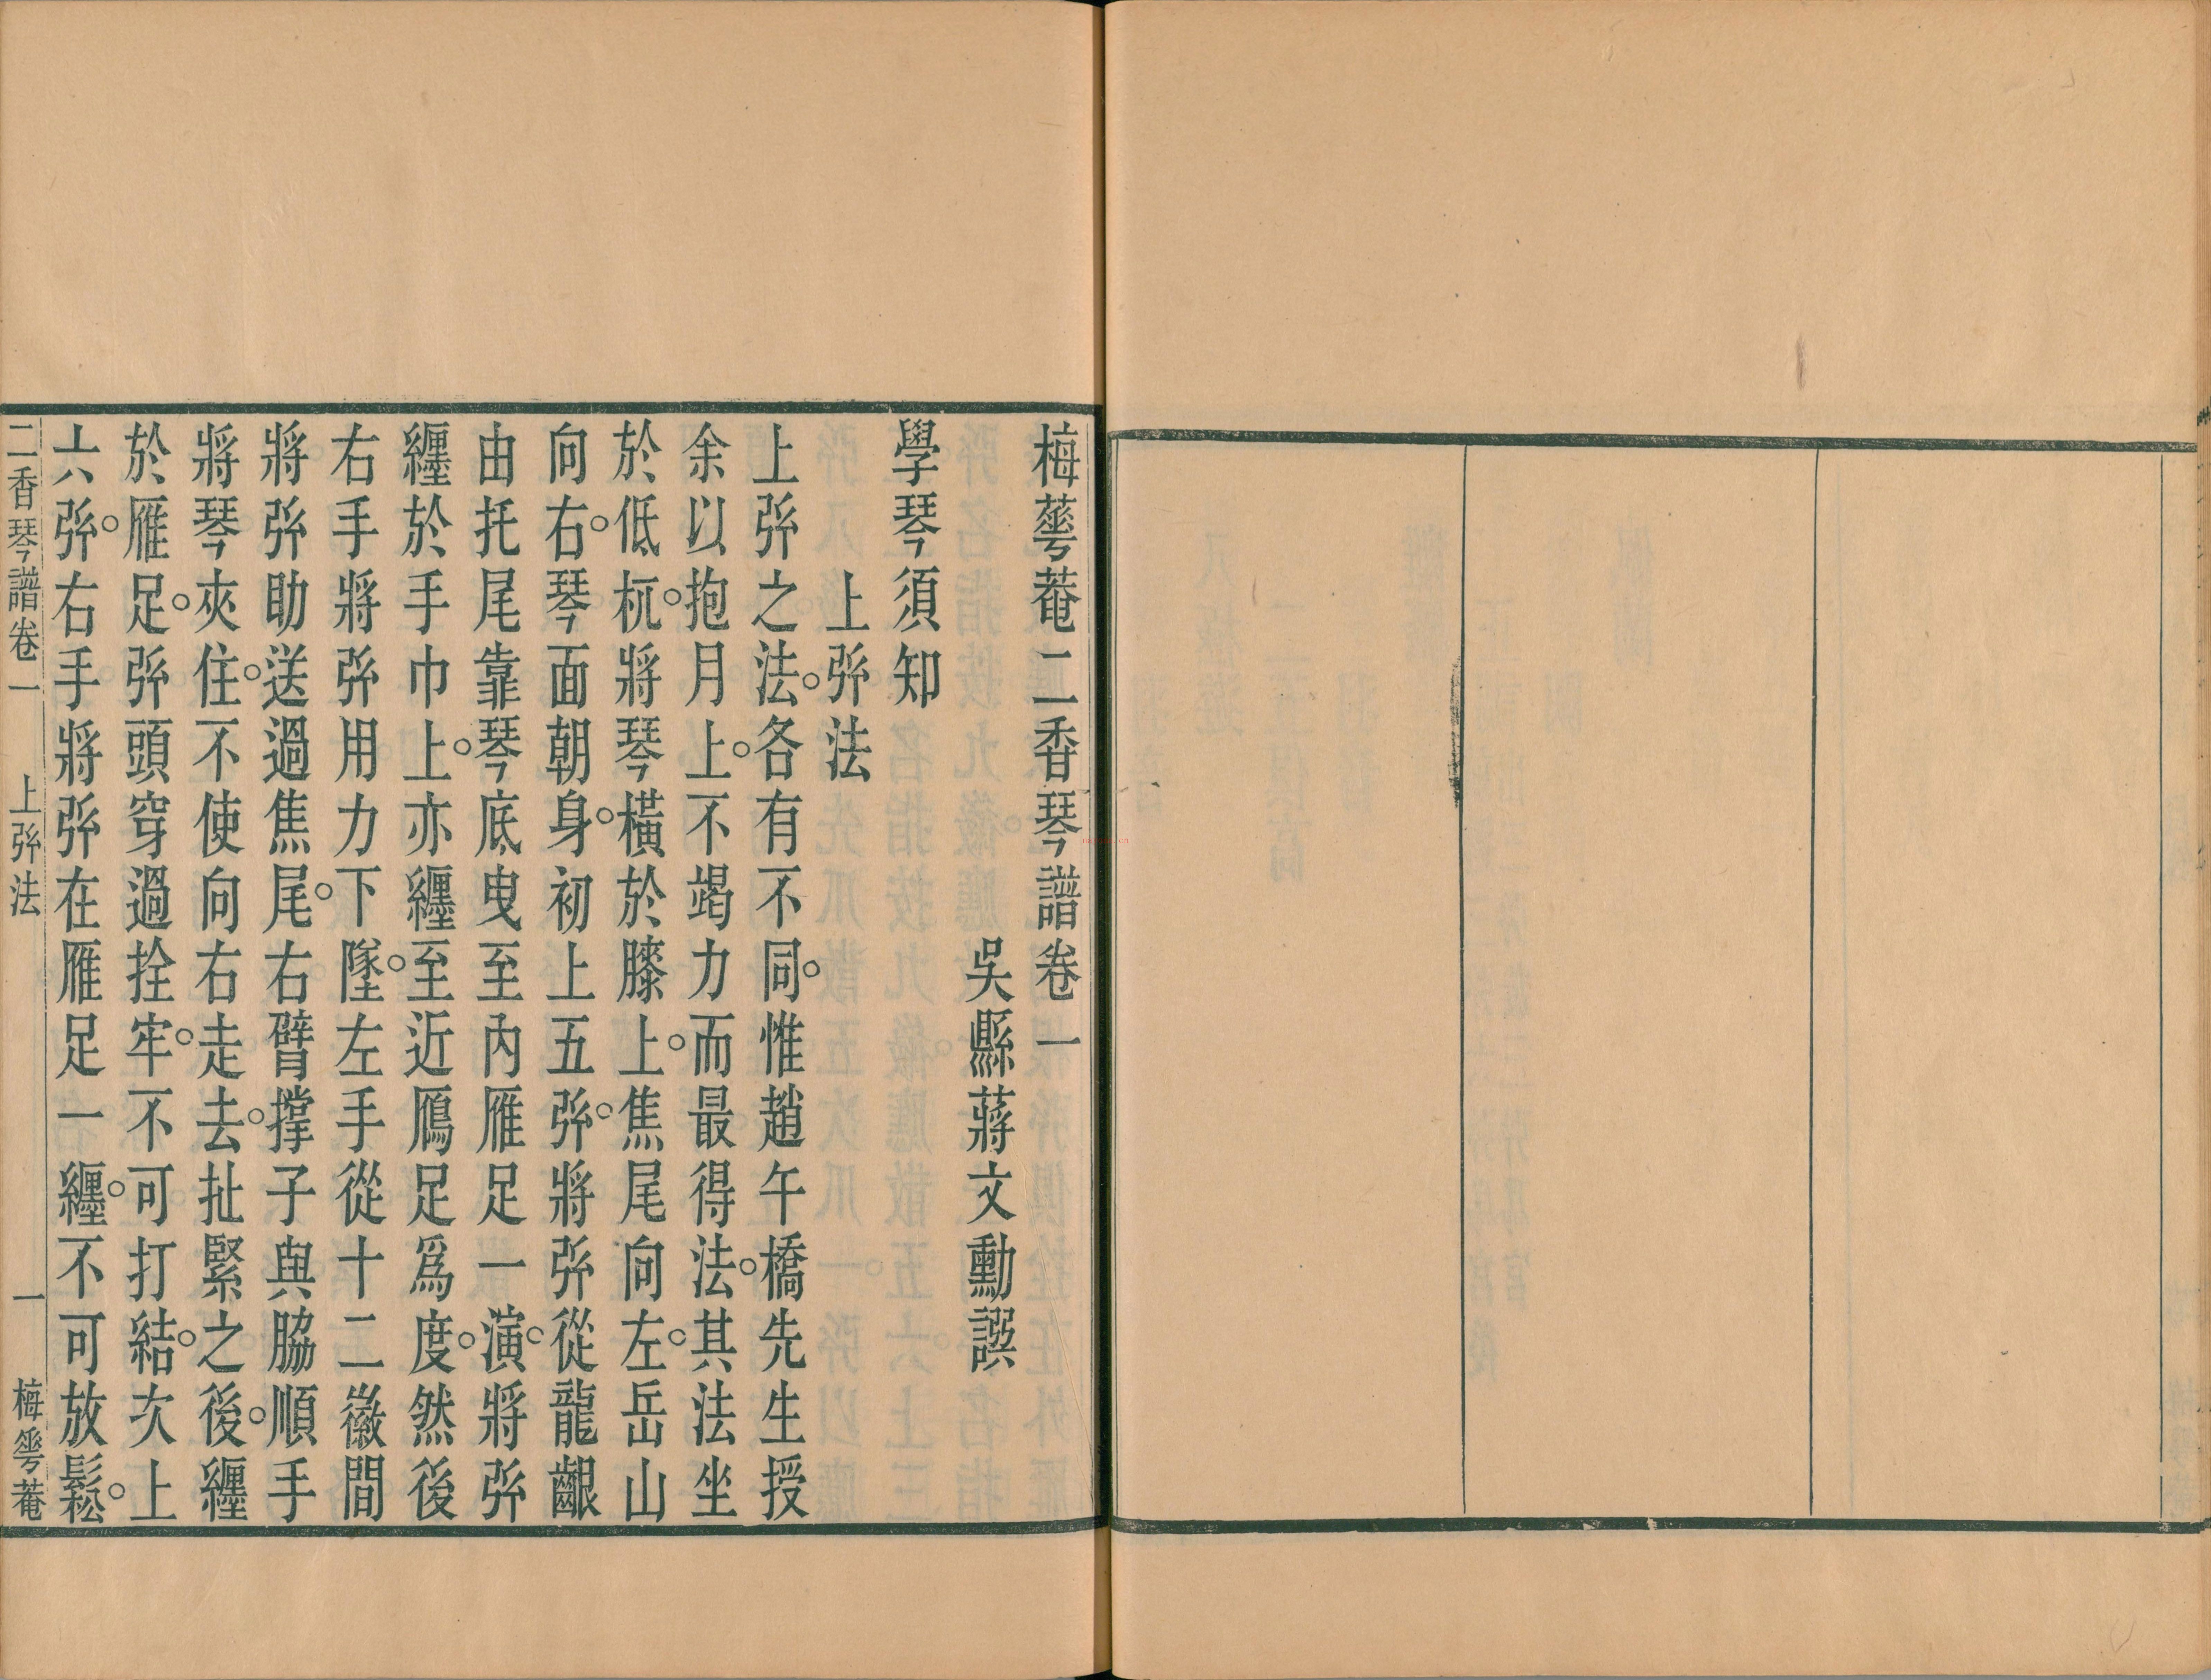 梅蕚菴二香琴譜卷一
吳縣蔣文勳譔
學琴須知
上弥法
上弥之法。各有不同。惟趙午橋先生授
余以抱月上。不竭力而最得法。其法坐
於低杌。將琴橫於膝上。焦尾向左。岳山
向右。琴面朝身。初上五弥。將弥從龍齦
由托尾靠琴底曳至內雁足一演。將弥
纏於手巾上。亦纏至近鴈足爲度。然後
右手將弥用力下墜。左手從十二徽間
將弥助送過焦尾。右臂撑子與脇順手
將琴夾住。不使向右走去。扯緊之後。纏
於雁足。弥頭穿過拴牢。不可打結。次上
六弥。右手將弥在雁足一纏。不可放鬆。
二香琴譜卷一 上弥法 一 梅蕚菴